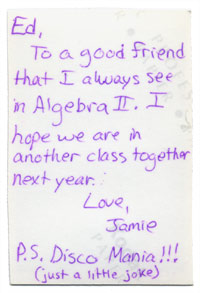 Ed,
To a good friend
that I always see
in Algebra II. I
hope we are in
another class together
next year.
Love,
Jamie
P.S. Disco Mania!!!
(just a little joke)